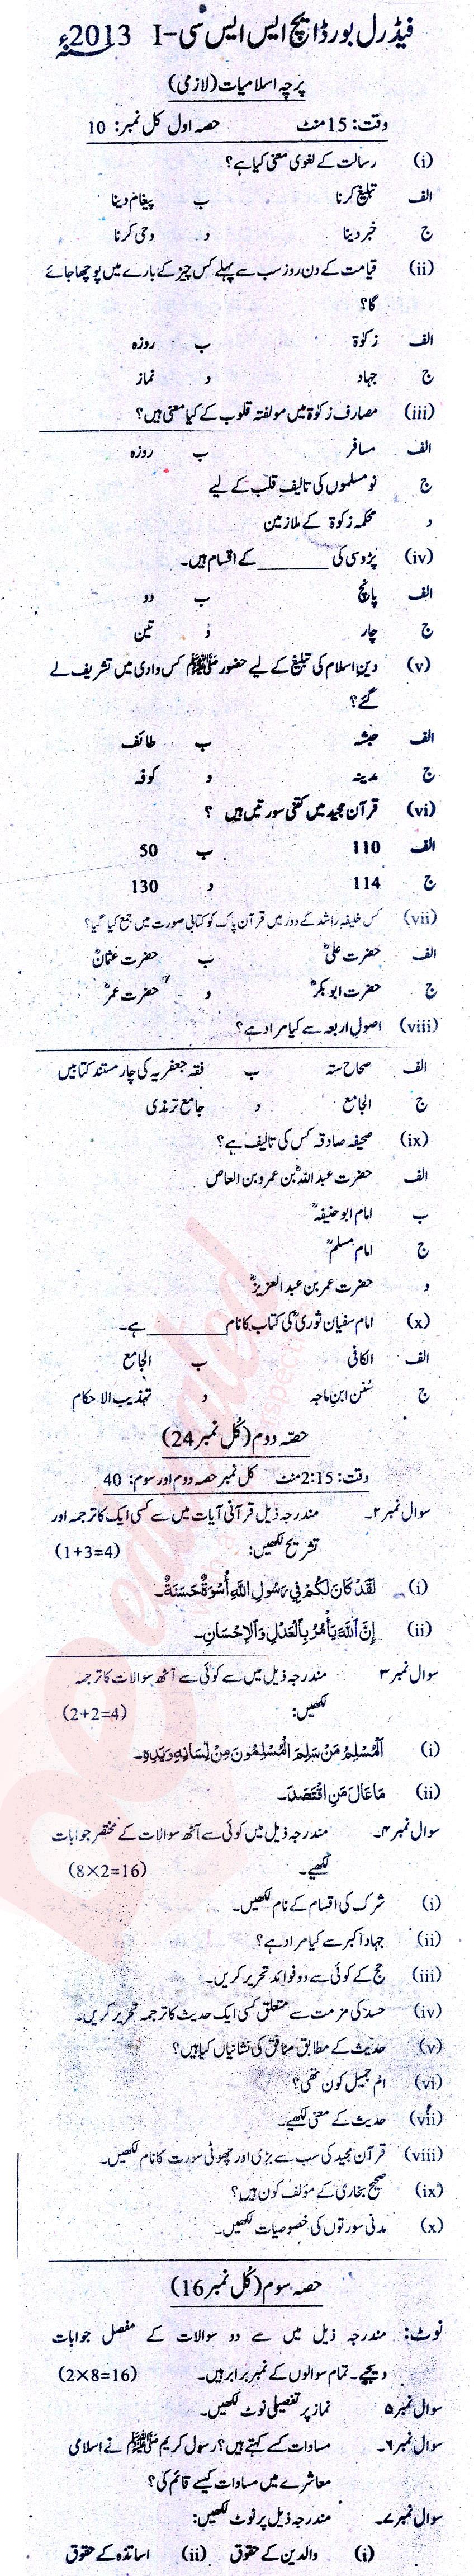 فیڈرل بورڈ ایچ ایس ایس سی-I 2013ء
پرچہ اسلامیات (لازمی)
وقت: 15 منٹ حصہ اول کل نمبر: 10
(i) رسالت کے لغوی معنی کیا ہے؟
الف تبلیغ کرنا ب پیغام دینا
ج خبر دینا د وحی کرنا
(ii) قیامت کے دن روز سب سے پہلے کس چیز کے بارے میں پوچھا جائے
گا؟
الف زکوٰۃ ب روزہ
ج جہاد د نماز
(iii) مصارف زکوٰۃ میں مولفتہ قلوب کے کیا معنی ہیں؟
الف مسافر ب روزہ
ج نو مسلموں کی تالیف قلب کے لیے
د محکمہ زکوۃ کے ملازمین
(iv) پڑوسی کی ________ کے اقسام ہیں۔
الف پانچ ب دو
ج چار د تین
(v) دین اسلام کی تبلیغ کے لیے حضور ﷺ کس وادی میں تشریف لے
گئے؟
الف حبشہ ب طائف
ج مدینہ د کوفہ
(vi) قرآن مجید میں کتنی سورتیں ہیں ؟
الف 110 ب 50
ج 114 د 130
(vii) کس خلیفہ راشد کے دور میں قرآن پاک کو کتابی صورت میں جمع کیا گیا؟
الف حضرت علیؓ ب حضرت عثمانؓ
ج حضرت ابوبکرؓ د حضرت عمرؓ
(viii) اصول اربعہ سے کیا مراد ہے؟
الف صحاح ستہ ب فقہ جعفریہ کی چار مستند کتابیں
ج الجامع د جامع ترمذی
(ix) صحیفہ صادقہ کس کی تالیف ہے؟
الف حضرت عبد اللہؓ بن عمرو بن العاص
ب امام ابو حنیفہؒ
ج امام مسلمؒ
د حضرت عمر بن عبد العزیزؒ
(x) امام سفیان ثوریؒ کی کتاب کا نام ________ ہے۔
الف الکافی ب الجامع
ج سُنن ابنِ ماجہ د تہذیب الاحکام
حصّہ دوم (کُل نمبر 24)
وقت: 2:15 منٹ کل نمبر حصہ دوم اور سوم: 40
سوال نمبر ۲۔ مندرجہ ذیل قرآنی آیات میں سے کسی ایک کا ترجمہ اور
تشریح لکھیں: (1+3=4)
(i) لَقَدْ كَانَ لَكُمْ فِي رَسُولِ اللَّهِ أُسْوَةٌ حَسَنَةٌ۔
(ii) إِنَّ اللَّهَ يَأْمُرُ بِالْعَدْلِ وَالْإِحْسَانِ۔
سوال نمبر ۳ مندرجہ ذیل میں سے کوئی سے آٹھ سوالات کا ترجمہ
لکھیں: (2+2=4)
(i) اَلْمُسْلِمُ مَنْ سَلِمَ الْمُسْلِمُونَ مِنْ لِسَانِهِ وَيَدِهِ۔
(ii) مَا عَالَ مَنِ اقْتَصَدَ۔
سوال نمبر ۴۔ مندرجہ ذیل میں کوئی سے آٹھ سوالات کے مختصر جوابات
لکھیے۔ (8×2=16)
(i) شرک کی اقسام کے نام لکھیں۔
(ii) جہاد اکبر سے کیا مراد ہے؟
(iii) حج کے کوئی سے دو فوائد تحریر کریں۔
(iv) حسد کی مزمت سے متعلق کسی ایک حدیث کا ترجمہ تحریر کریں۔
(v) حدیث کے مطابق منافق کی نشانیاں کیا ہیں؟
(vi) ام جمیل کون تھی؟
(vii) حدیث کے معنی لکھیے۔
(viii) قرآن مجید کی سب سے بڑی اور چھوٹی سورت کا نام لکھیں۔
(ix) صحیح بخاری کے مؤلف کون ہیں؟
(x) مدنی سورتوں کی خصوصیات لکھیں۔
حصہ سوم (کُل نمبر 16)
نوٹ: مندرجہ ذیل میں سے دو سوالات کے مفصل جوابات
دیجیے۔ تمام سوالوں کے نمبر برابر ہیں۔ (2×8=16)
سوال نمبر ۵ نماز پر تفصیلی نوٹ لکھیں۔
سوال نمبر ۶۔ مساوات کسے کہتے ہیں؟ رسول کریم ﷺ نے اسلامی
معاشرے میں مساوات کیسے قائم کی؟
سوال نمبر ۷۔ مندرجہ ذیل پر نوٹ لکھیں:
(i) والدین کے حقوق (ii) اساتذہ کے حقوق